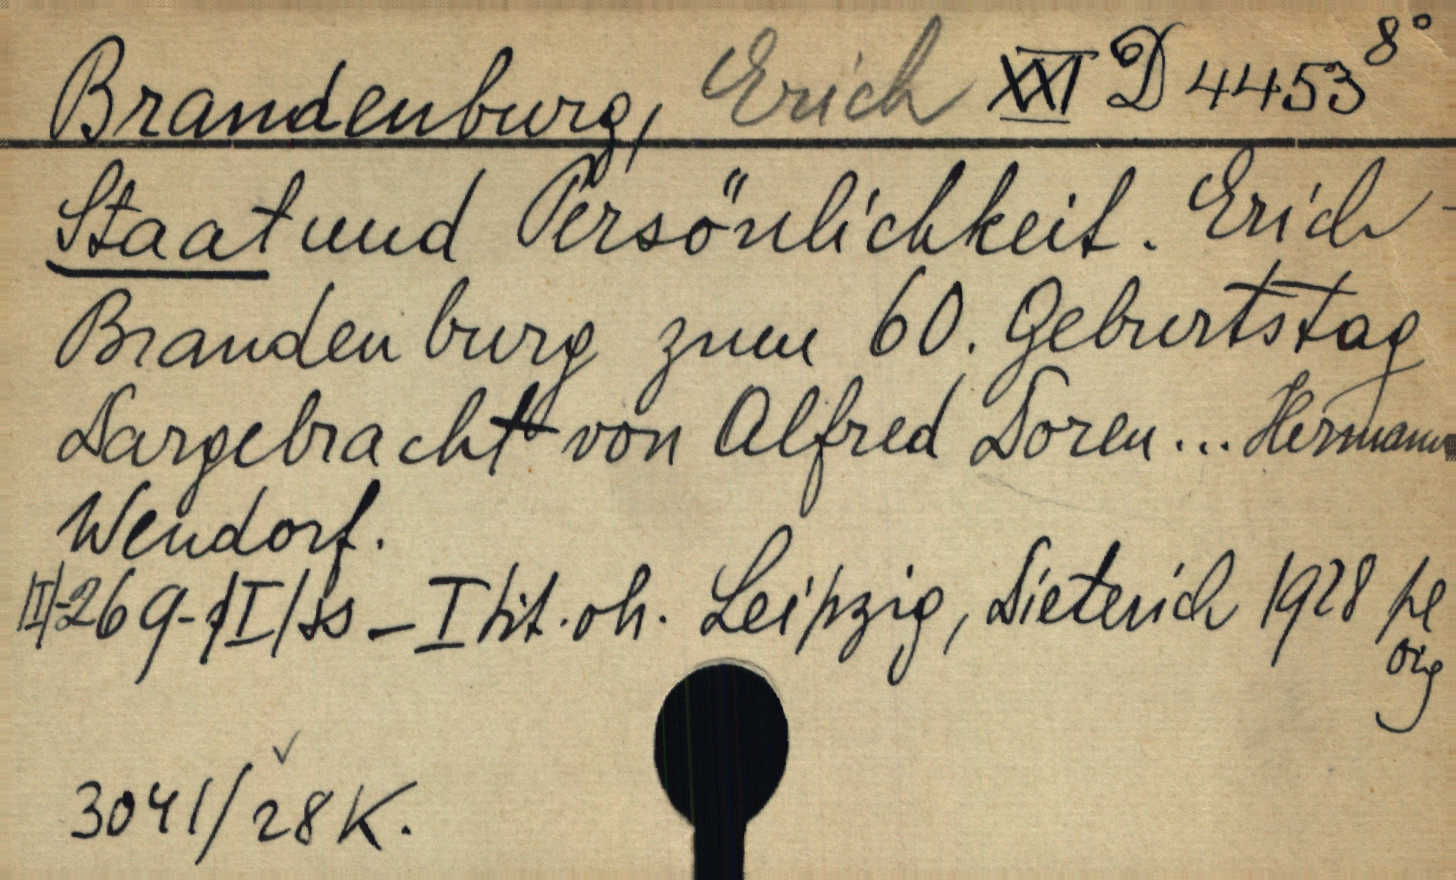 Brandenburg, Erich XXI D 4453 8°
Staat und Persönlichkeit. Erich-
Brandenburg zum 60. Geburtstag
Dargebracht von Alfred Doren... Hermann
Wendorf.
II/-269- I tit. oh. Leipzig, Dieterich 1928 pl
3041/28 K.